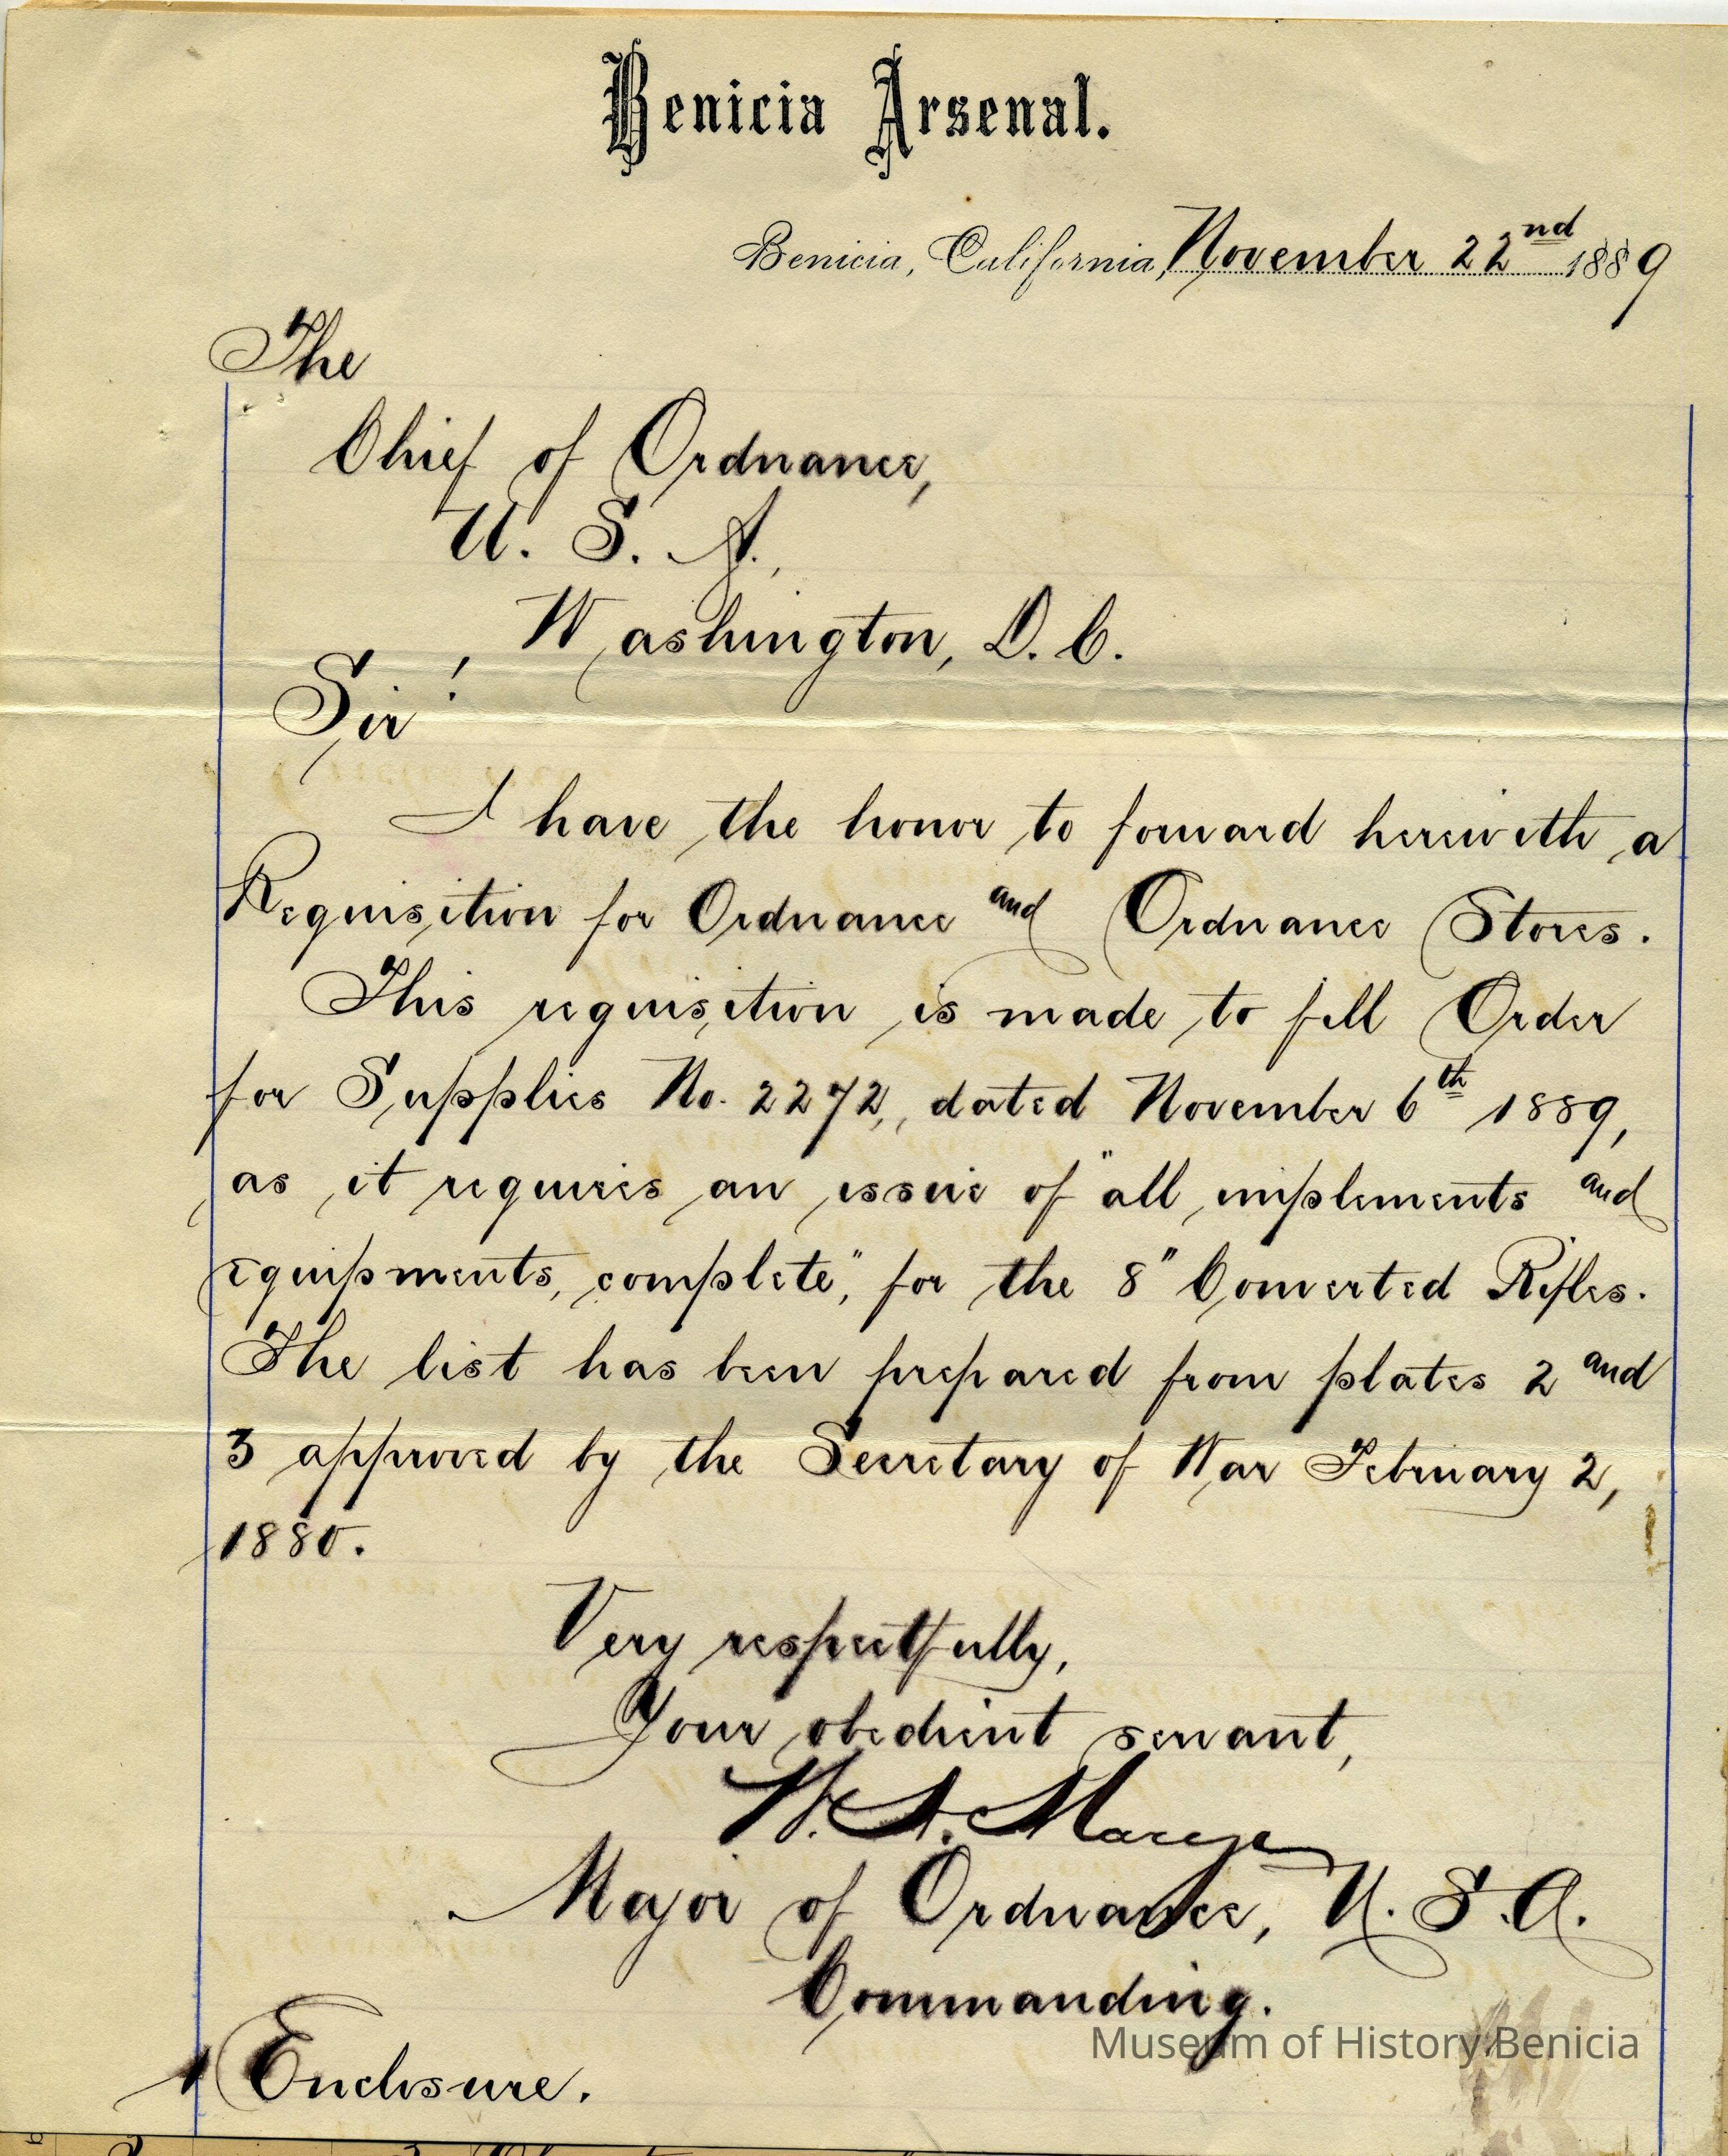 Benicia Arsenal.
Benicia, California, November 22nd 1889
The
Chief of Ordnance,
U. S. A.,
Washington, D. C.
Sir!
I have the honor to forward herewith a
Requisition for Ordnance and Ordnance Stores.
This requisition is made to fill Order
for Supplies No. 2272, dated November 6th 1889,
as it requires an issue of "all implements and
equipments, complete", for the 8" Converted Rifles.
The list has been prepared from plates 2 and
3 approved by the Secretary of War February 2,
1880.
Very respectfully,
Your obedient servant,
W. A. Marye
Major of Ordnance, U. S. A.
Commanding.
Museum of History Benicia
1 Enclosure.